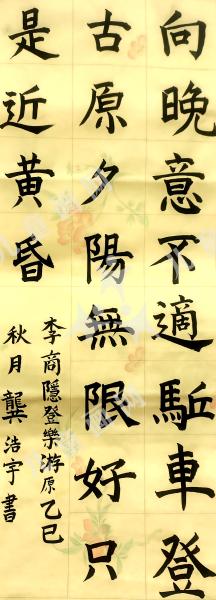 向晚意不適駈車登
古原夕陽無限好只
是近黃昏
李商隱登樂游原乙巳
秋月龔浩宇書